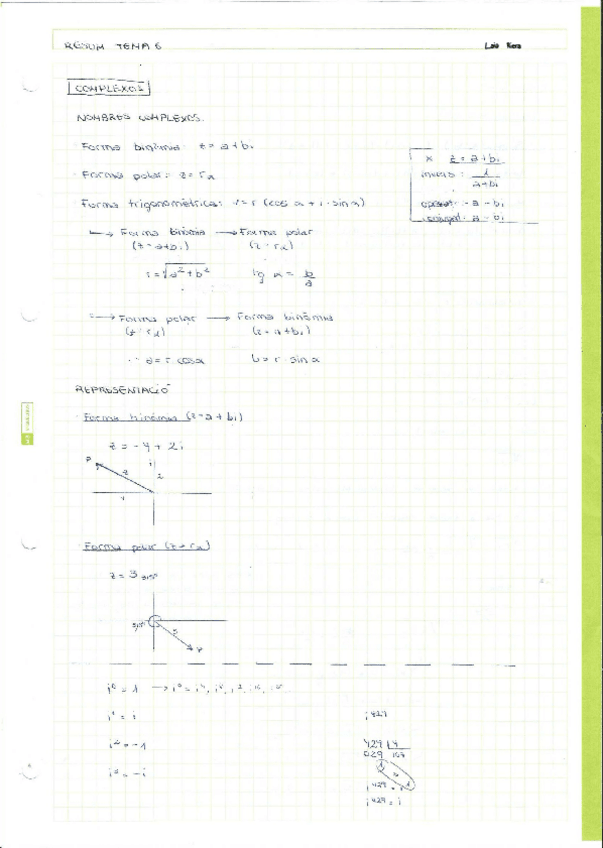 RESUM TEMA 6
COMPLEXOS
NOMBRES COMPLEXOS.
Forma binòmica: z = a + bi
Forma polar: z = rα
Forma trigonomètrica: = r (cos α + i · sin α)
* z = a + bi
invers: 1 / a+bi
oposat: -a - bi
conjugat: a - bi
→ Forma binòmica → Forma polar
(z = a+bi) (z = rα)
r = √a² + b² tg α = b/a
→ Forma polar → Forma binòmica
(z = rα) (z = a + bi)
a = r cos α b = r · sin α
REPRESENTACIÓ
Forma binòmica (z = a + bi)
z = -4 + 2i
P z i 2
4
Forma polar (z = rα)
z = 3 315º
315º 3 P
i⁰ = 1
i¹ = i
i² = -1
i³ = -i
i⁴²⁹
429 4
029
1
i⁴²⁹ = i